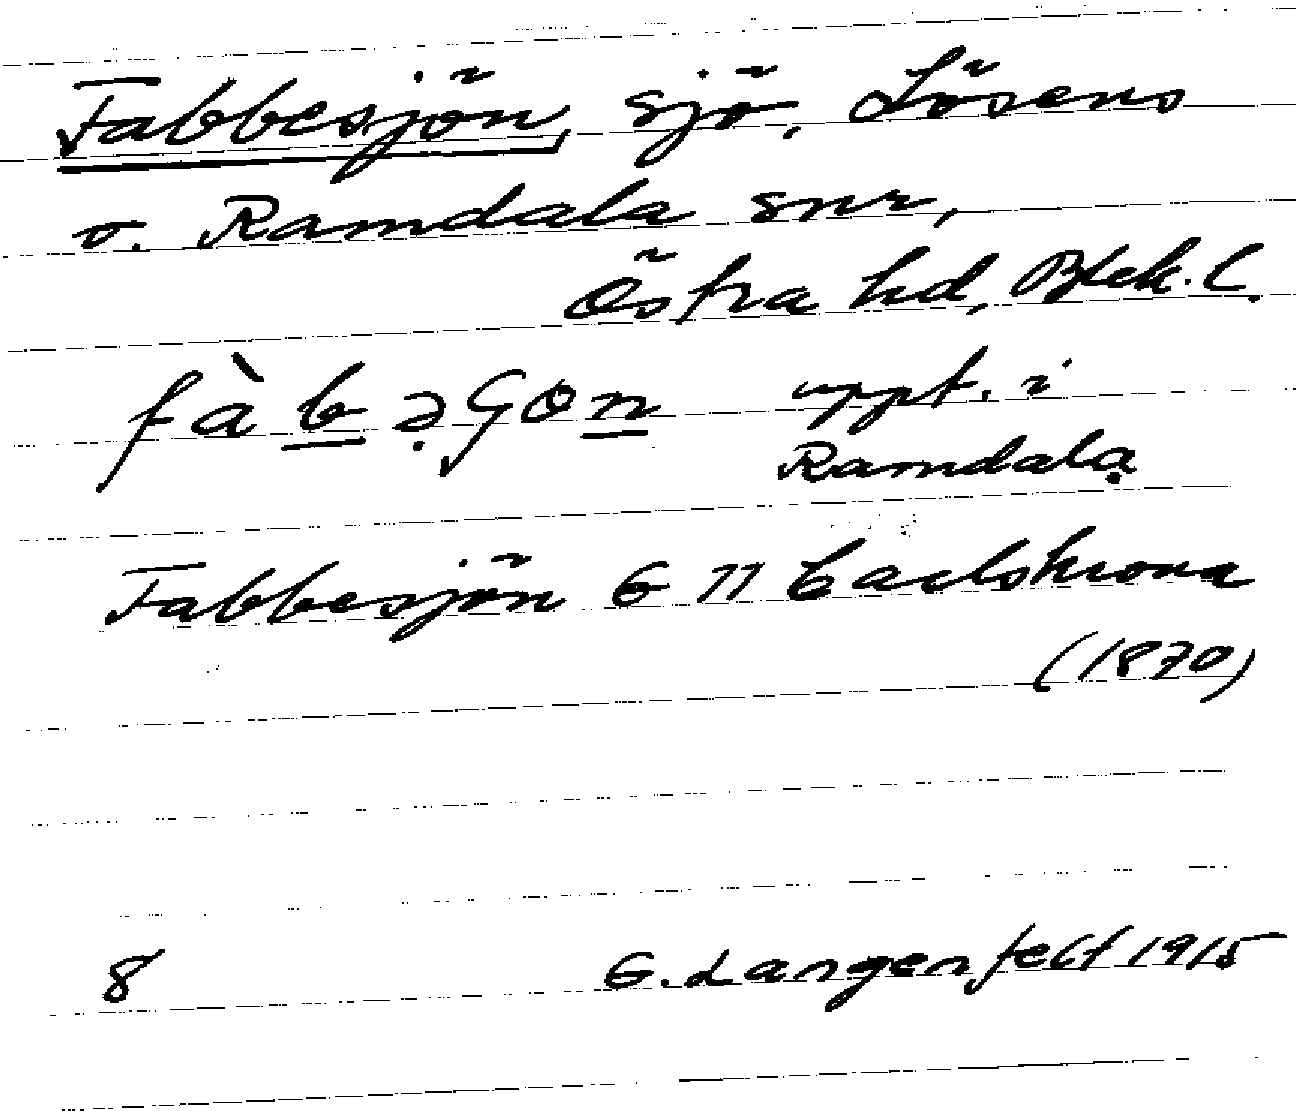 Fabbesjön, sjö, Lösens
o. Ramdala snr,
Östra hd, Blek. l.
fàbəʃɷn uppt. i
Ramdala
Fabbesjön G 11 Carlskrona
(1870)
8 G. Langenfelt 1915